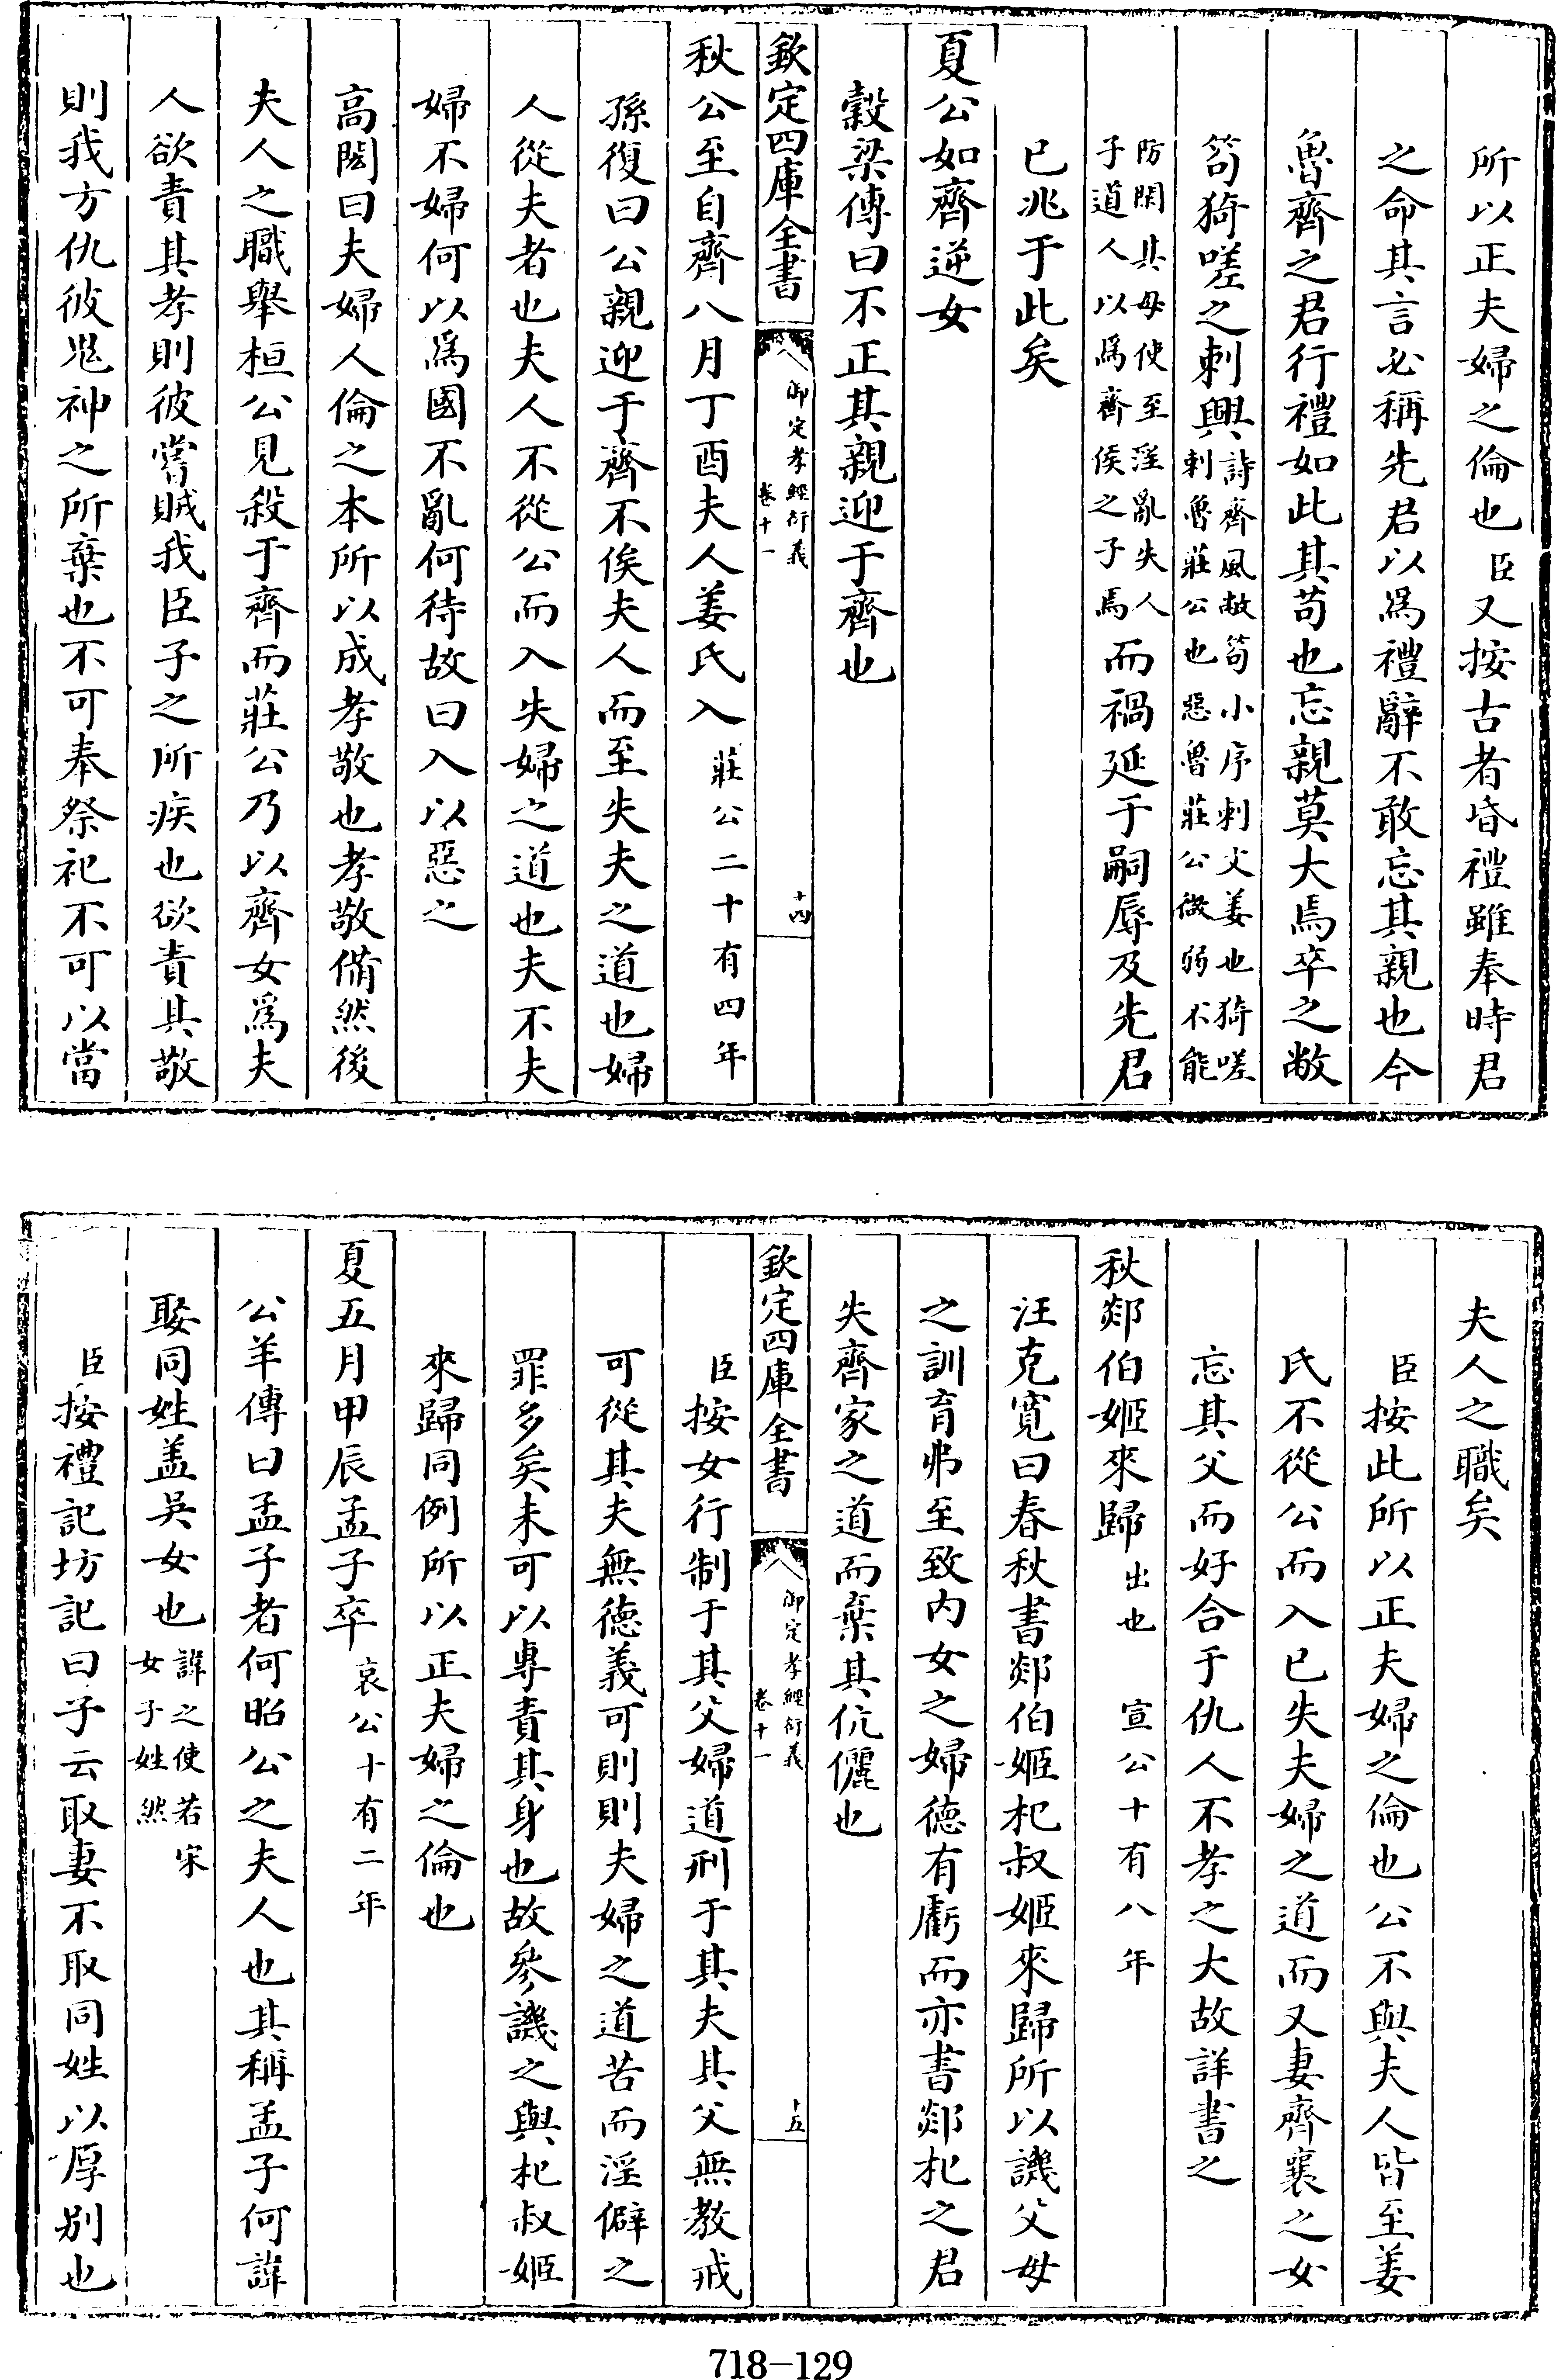 所以正夫婦之倫也臣又按古者昏禮雖奉時君
之命其言必稱先君以爲禮辭不敢忘其親也今
魯齊之君行禮如此其苟也忘親莫大焉卒之敝
笱猗嗟之刺興詩齊風敝笱小序刺文姜也猗嗟刺魯莊公也惡魯莊公微弱不能
防閑其母使至淫亂失人子道人以爲齊侯之子焉而禍延于嗣辱及先君
已兆于此矣
夏公如齊逆女
穀梁傳曰不正其親迎于齊也
欽定四庫全書 御定孝經衍義 卷十一 十四
秋公至自齊八月丁酉夫人姜氏入莊公二十有四年
孫復曰公親迎于齊不俟夫人而至失夫之道也婦
人從夫者也夫人不從公而入失婦之道也夫不夫
婦不婦何以爲國不亂何待故曰入以惡之
高閌曰夫婦人倫之本所以成孝敬也孝敬備然後
夫人之職舉桓公見殺于齊而莊公乃以齊女爲夫
人欲責其孝則彼嘗賊我臣子之所疾也欲責其敬
則我方仇彼鬼神之所棄也不可奉祭祀不可以當
夫人之職矣
臣按此所以正夫婦之倫也公不與夫人皆至姜
氏不從公而入已失夫婦之道而又妻齊襄之女
忘其父而好合于仇人不孝之大故詳書之
秋郯伯姬來歸出也 宣公十有八年
汪克寬曰春秋書郯伯姬杞叔姬來歸所以譏父母
之訓育弗至致內女之婦德有虧而亦書郯杞之君
失齊家之道而棄其伉儷也
欽定四庫全書 御定孝經衍義 卷十一 十五
臣按女行制于其父婦道刑于其夫其父無教戒
可從其夫無德義可則則夫婦之道苦而淫僻之
罪多矣未可以專責其身也故參譏之與杞叔姬
來歸同例所以正夫婦之倫也
夏五月甲辰孟子卒哀公十有二年
公羊傳曰孟子者何昭公之夫人也其稱孟子何諱
娶同姓盖吳女也諱之使若宋女子姓然
臣按禮記坊記曰子云取妻不取同姓以厚别也
718-129